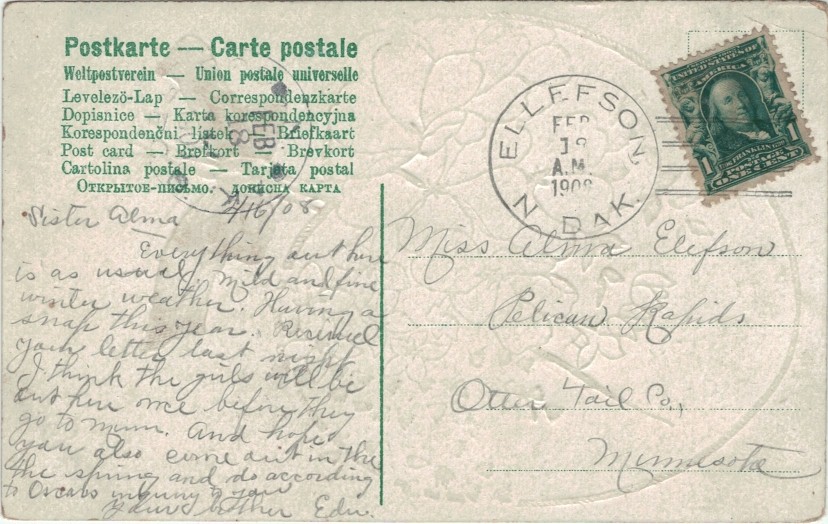 Postkarte — Carte postale
Weltpostverein — Union postale universelle
Levelező-Lap — Correspondenzkarte
Dopisnice — Karta korespondencyjna
Korespondenční lístek — Briefkaart
Post card — Brefkort — Brevkort
Cartolina postale — Tarjeta postal
Открытое-письмо. дописна карта
ELLEFSON,
N. DAK.
FEB
18
A.M.
1908
UNITED STATES OF
AMERICA
1 1
FRANKLIN
POSTAGE
ONE CENT
FEB
18
Sister Alma 2/16/08
Everything out here
is as usual, mild and fine
winter weather. Having a
snap this year. Received
your letter last night
I think the girls will be
out here once before they
go to Minn. And hope
you also come out in the
the spring and do according
to Oscars inquiry to you
Your brother Edw.
Miss Alma Elefson
Pelican Rapids
Otter Tail Co.,
Minnesota